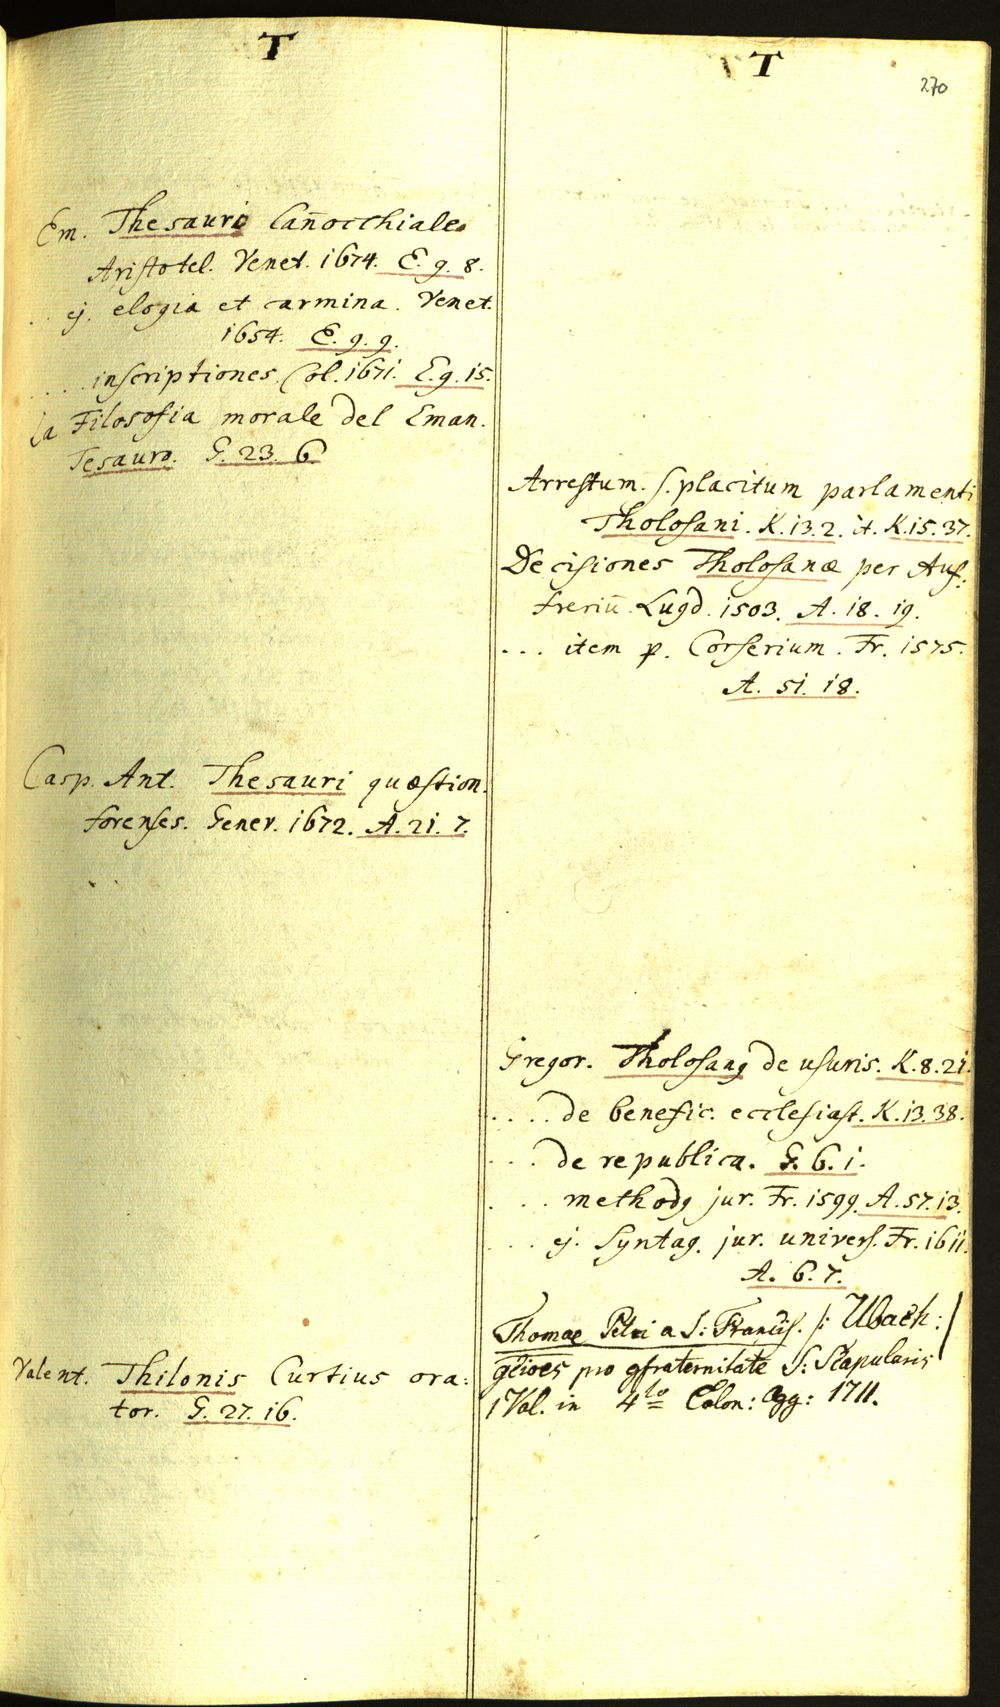 T
Em. Thesauri Can̄occhiale
Aristotel. Venet. 1674. E. 9. 8.
. . ej. elogia et carmina. Venet.
1654. E. 9. 9.
. . . inscriptiones. Col. 1671. E. 9. 15.
la Filosofia morale del Eman.
Tesauro. G. 23. 6
Casp. Ant. Thesauri quæstion.
forenses. Gener. 1672. A. 21. 7.
Valent. Thilonis Curtius ora:
tor. G. 27. 16.
T
270
Arrestum. s. placitum parlamenti
Tholosani. K. 13. 2. it. K. 15. 37.
Decisiones Tholosanæ per Auf:
freriū Lugd. 1503. A. 18. 19.
. . . item p. Corserium. Fr. 1575.
A. 51. 18.
Gregor. Tholosang de usuris. K. 8. 21.
. . . . de benefic. ecclesiast. K. 13. 38.
. . . de republica. G. 6. 1.
. . . methodg jur. Fr. 1599. A. 57. 13.
. . . ej. Syntag. jur. univers. Fr. 1611.
A. 6. 7.
Thomae Petri a S: Francis. /: Ubach :/
pro gfraternitate S: Scapularis
1 Vol. in 4to Colon: Agg: 1711.